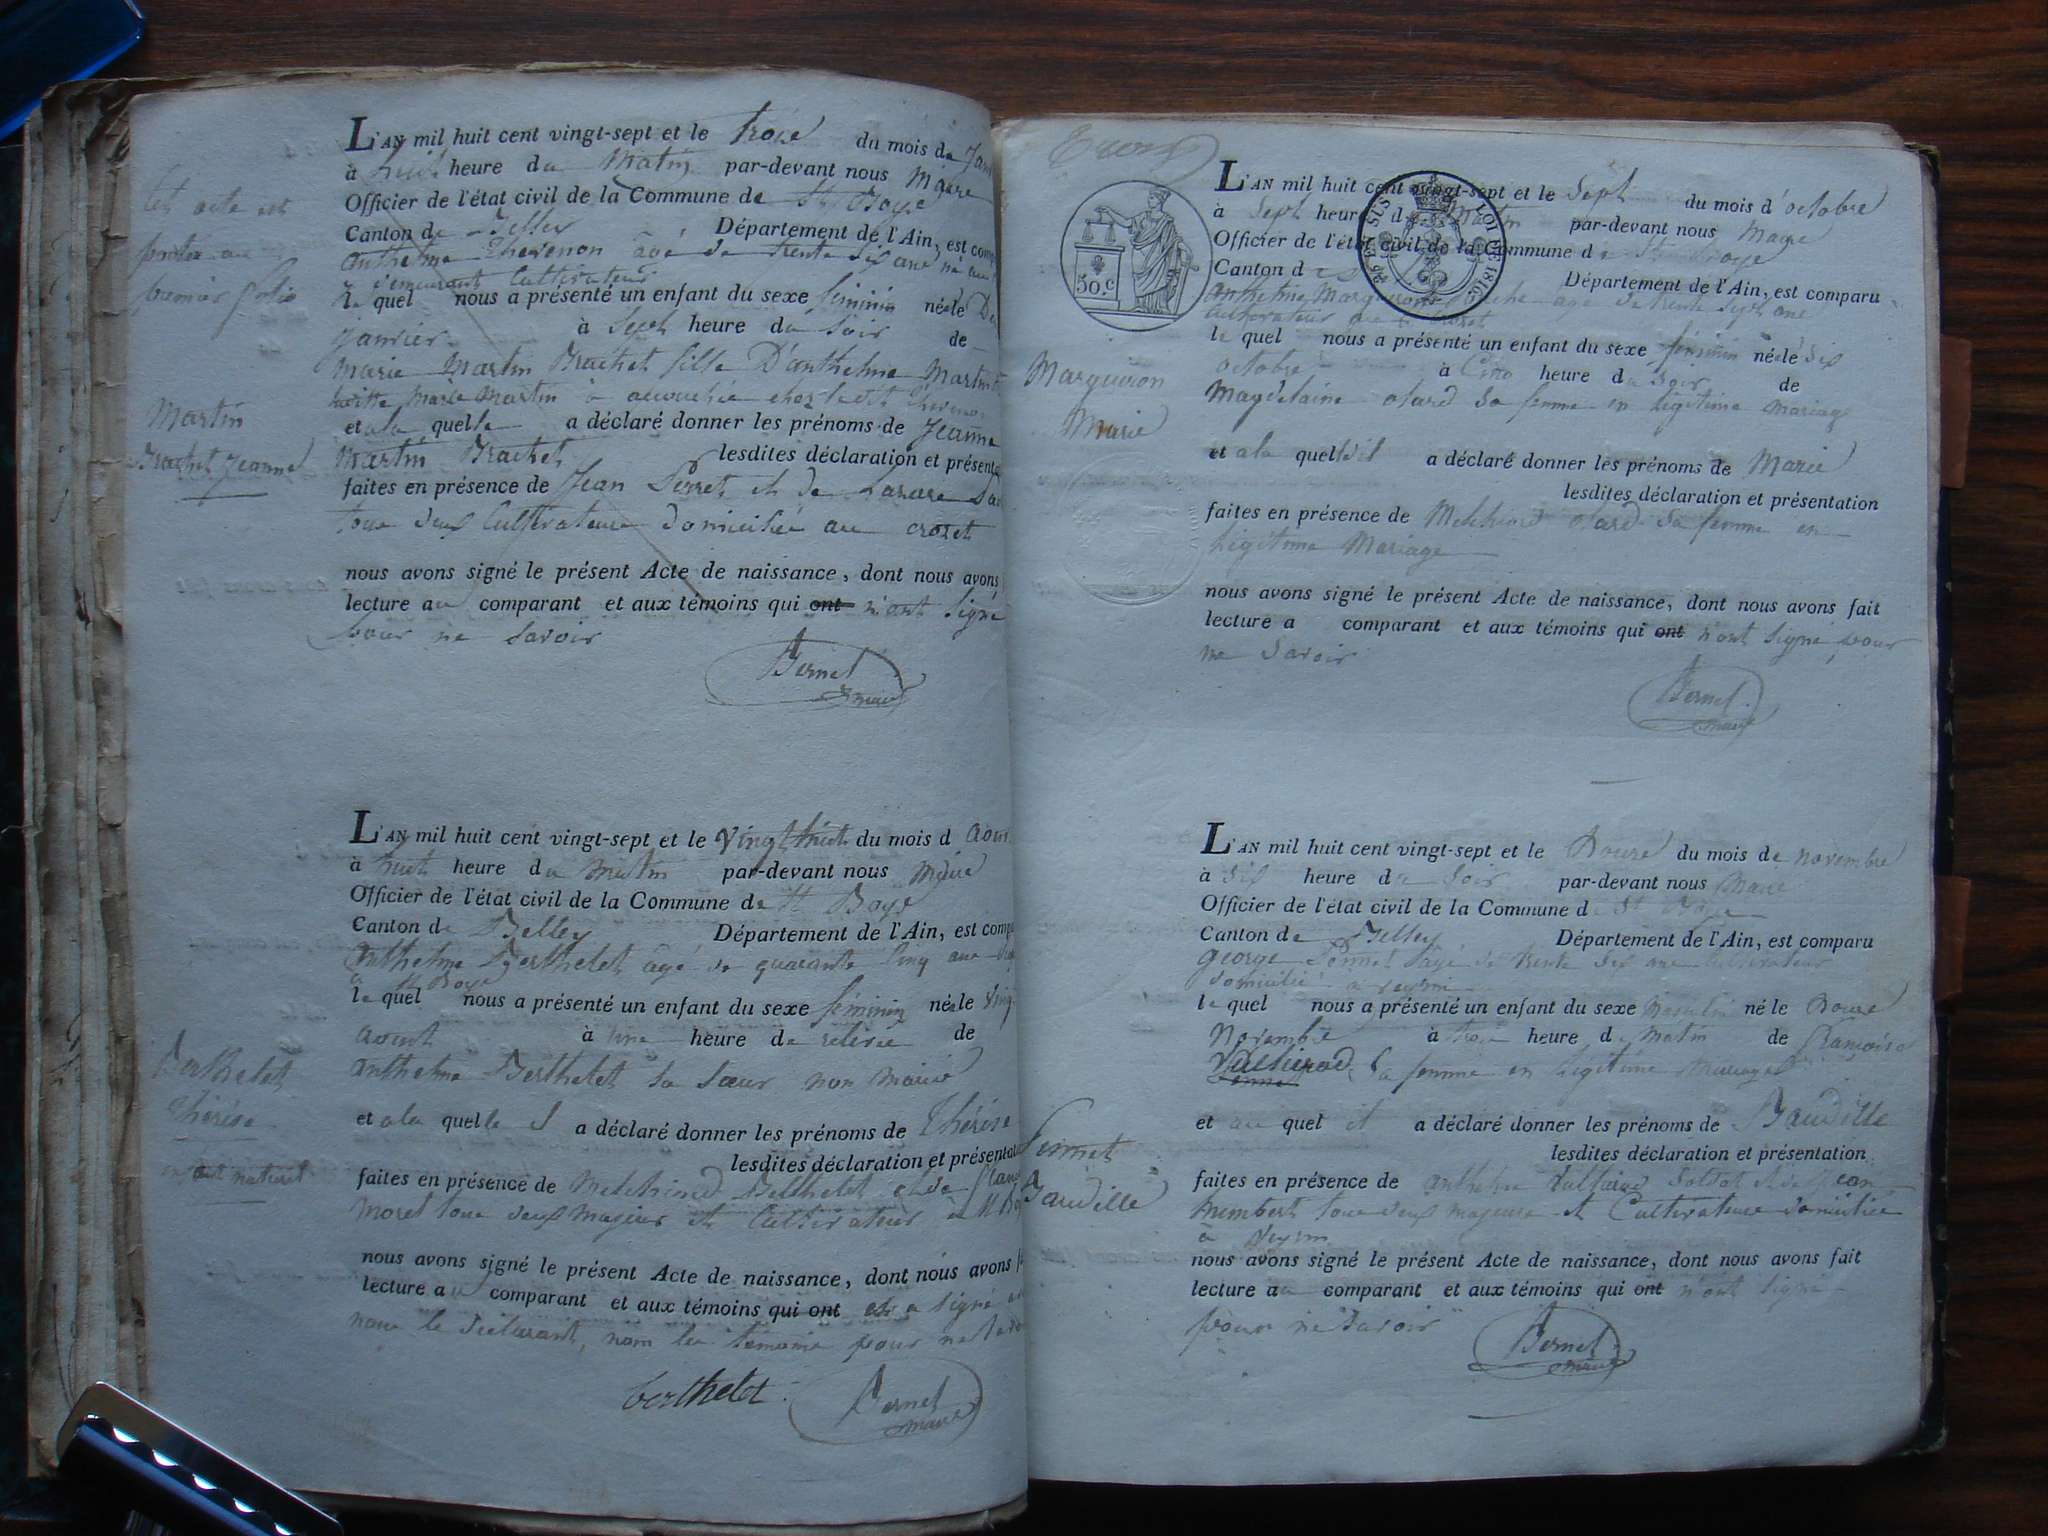 L'AN mil huit cent vingt-sept et le trois du mois de Janv
à huit heure du Matin par-devant nous Maire
Officier de l'état civil de la Commune de St Boys
Canton de Belley Département de l'Ain, est comp
anthelme Thevenon âgé de trente six ans
demeurant Cultivateur
le quel nous a présenté un enfant du sexe féminin née le
janvier à Sept heure du Soir de
Marie Martin Brachet fille D'anthelme Martin
Marie Martin a accouchée chez ledit Thevenon
et a la quelle a déclaré donner les prénoms de Jeanne
Martin Brachet lesdites déclaration et présenta
faites en présence de Jean Perret et de
tous deux Cultivateurs domiciliés au crozet
nous avons signé le présent Acte de naissance, dont nous avons
lecture au comparant et aux témoins qui ont n'ont Signé
pour ne Savoir
Bernel
maire
Cet acte est
porté au
premier folio
Martin
Brachet Jeanne
L'AN mil huit cent vingt-sept et le vingt huit du mois d aou
à huit heure du Matin par-devant nous Maire
Officier de l'état civil de la Commune de St Boys
Canton de Belley Département de l'Ain, est compa
anthelme Berthelet âgé de quarante cinq ans
à St Boys
le quel nous a présenté un enfant du sexe féminin née le ving
aout à une heure de relevée de
anthelme Berthelet sa Sœur non Mariée
et a la quelle a déclaré donner les prénoms de Thérèse
lesdites déclaration et présentat
faites en présence de Melchiord Berthelet et de
Moret tous deux Majeurs et Cultivateurs à St Boy
nous avons signé le présent Acte de naissance, dont nous avons f
lecture au comparant et aux témoins qui ont a signé
nous le déclarant, non les témoins pour ne
berthelet
Bernel
maire
Berthelet
Thérèse
enfant naturel
Trois
30.c
LOI DE 1816
L'AN mil huit cent vingt-sept et le Sept du mois d'octobre
à Sept heure du Matin par-devant nous Maire
Officier de l'état civil de la Commune de St Boys
Canton de Département de l'Ain, est comparu
anthelme Marquiron âgé de trente Sept ans
Cultivateur au Crozet
le quel nous a présenté un enfant du sexe féminin née le Six
octobre à Cinq heure du Soir de
Magdelaine otard Sa femme en légitime mariage
et a la quelle il a déclaré donner les prénoms de Marie
lesdites déclaration et présentation
faites en présence de Melchiord otard Sa femme en
légitime Mariage
nous avons signé le présent Acte de naissance, dont nous avons fait
lecture a comparant et aux témoins qui ont n'ont signé pour
ne Savoir
Bernel
maire
Marquiron
Marie
L'AN mil huit cent vingt-sept et le Douze du mois de novembre
à Six heure du Soir par-devant nous Maire
Officier de l'état civil de la Commune de St Boys
Canton de Belley Département de l'Ain, est comparu
george Sonnet âgé de trente Six ans Cultivateur
domicilié à Veyrin
le quel nous a présenté un enfant du sexe Masculin né le Douze
Novembre à trois heure du matin de françoise
Sa femme en légitime Mariage
et au quel il a déclaré donner les prénoms de Baudille
lesdites déclaration et présentation
faites en présence de anthelme et de Jean
humbert tous deux majeurs et Cultivateurs domiciliés
à Veyrin
nous avons signé le présent Acte de naissance, dont nous avons fait
lecture au comparant et aux témoins qui ont n'ont signé
pour ne Savoir
Bernel
maire
Sonnet
Baudille